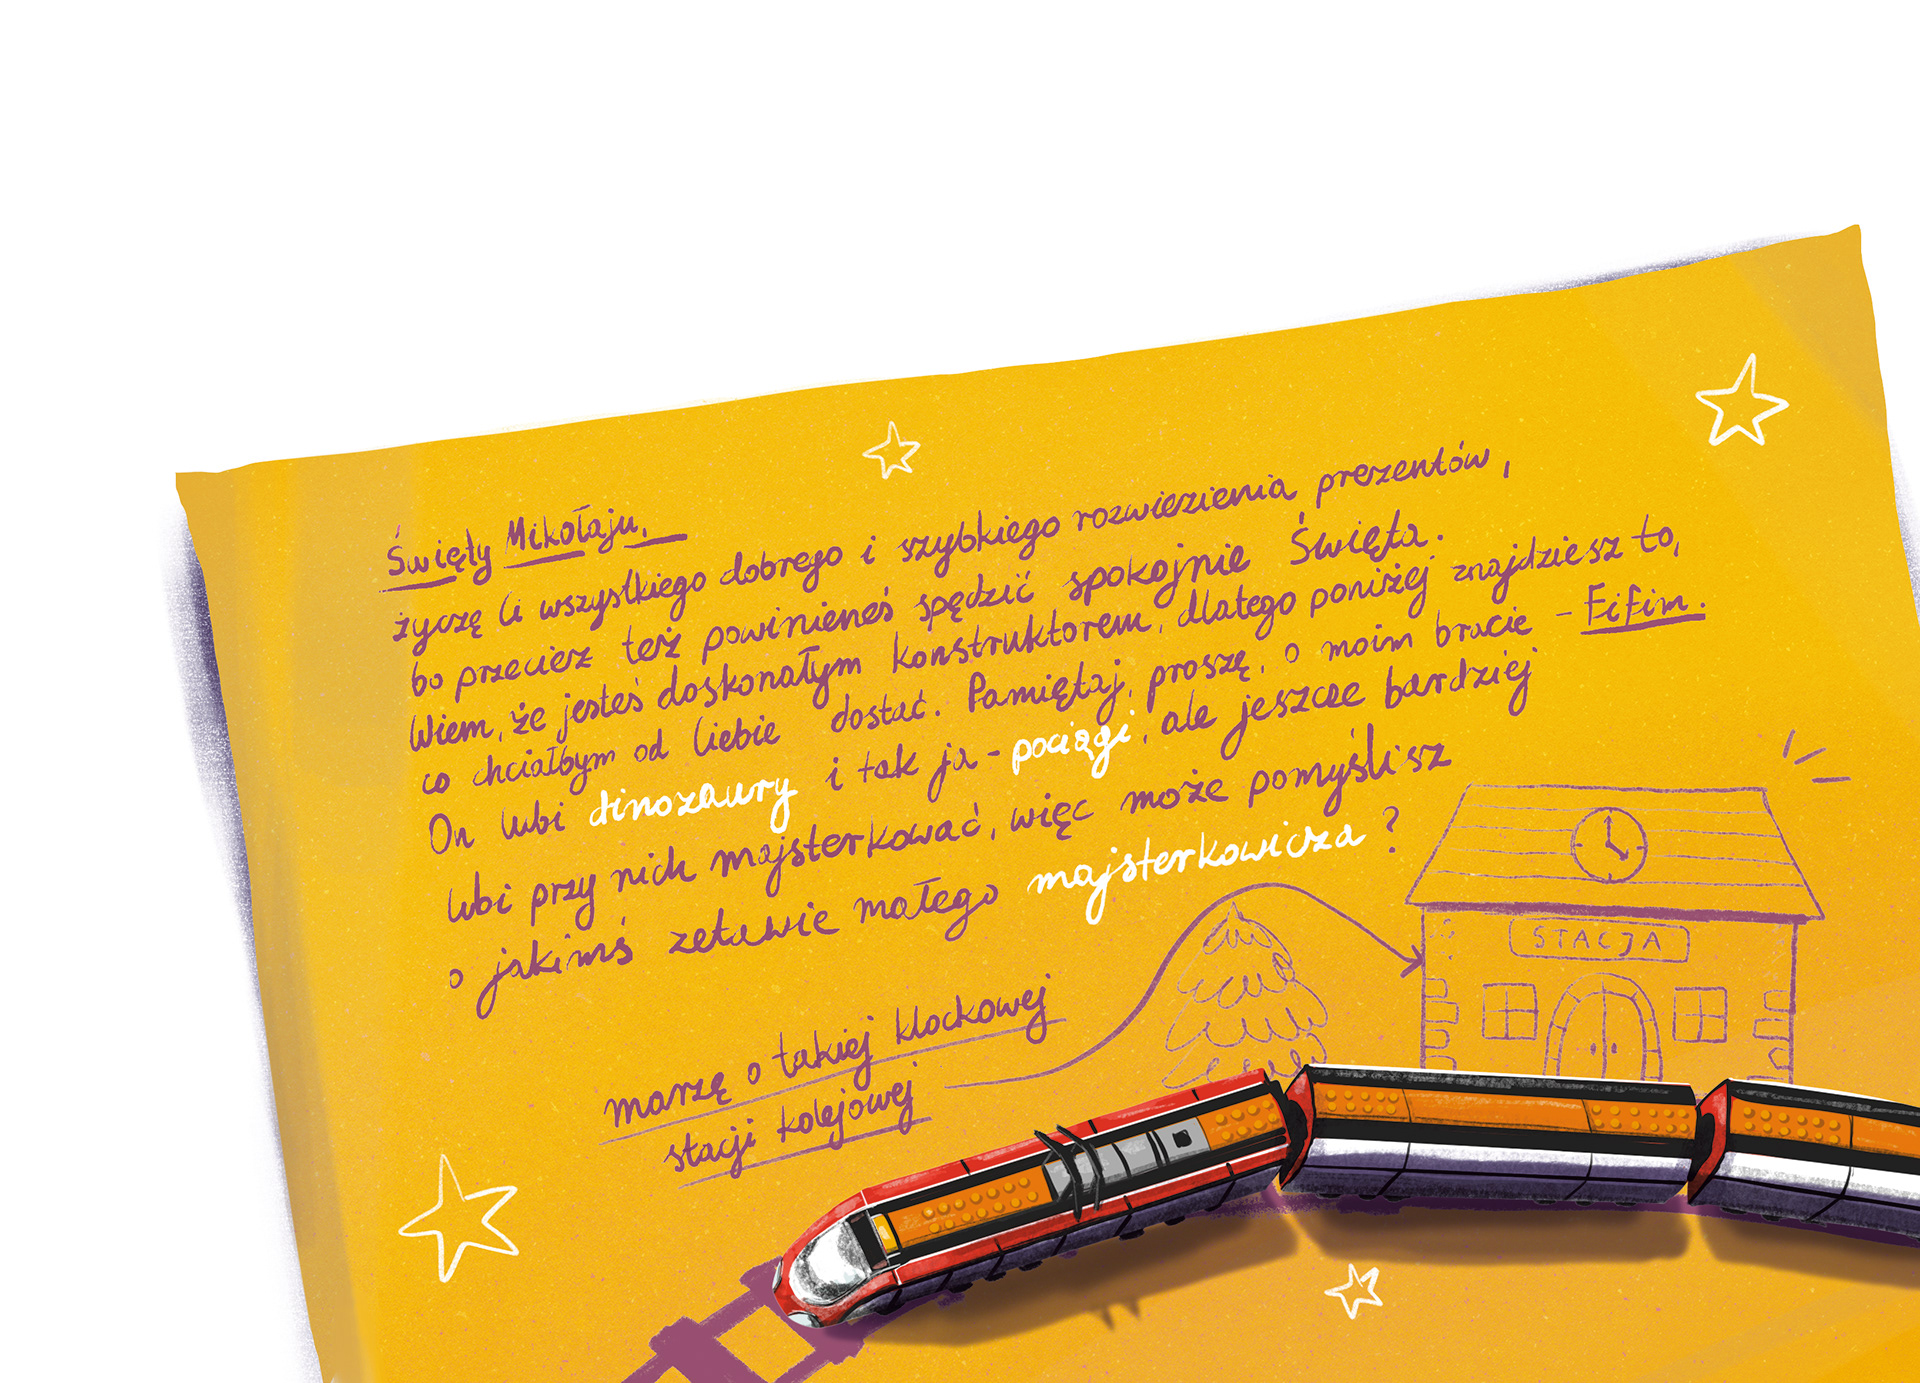 Święty Mikołaju,
życzę Ci wszystkiego dobrego i szybkiego rozwiezienia prezentów,
bo przecież też powinieneś spędzić spokojnie Święta.
Wiem, że jesteś doskonałym konstruktorem, dlatego poniżej znajdziesz to,
co chciałbym od Ciebie dostać. Pamiętaj, proszę, o moim bracie - Fifim.
On lubi dinozaury i tak ja - pociągi, ale jeszcze bardziej
lubi przy nich majsterkować, więc może pomyślisz
o jakimś zetawie małego majsterkowicza?
marzę o takiej klockowej
stacji kolejowej
STACJA